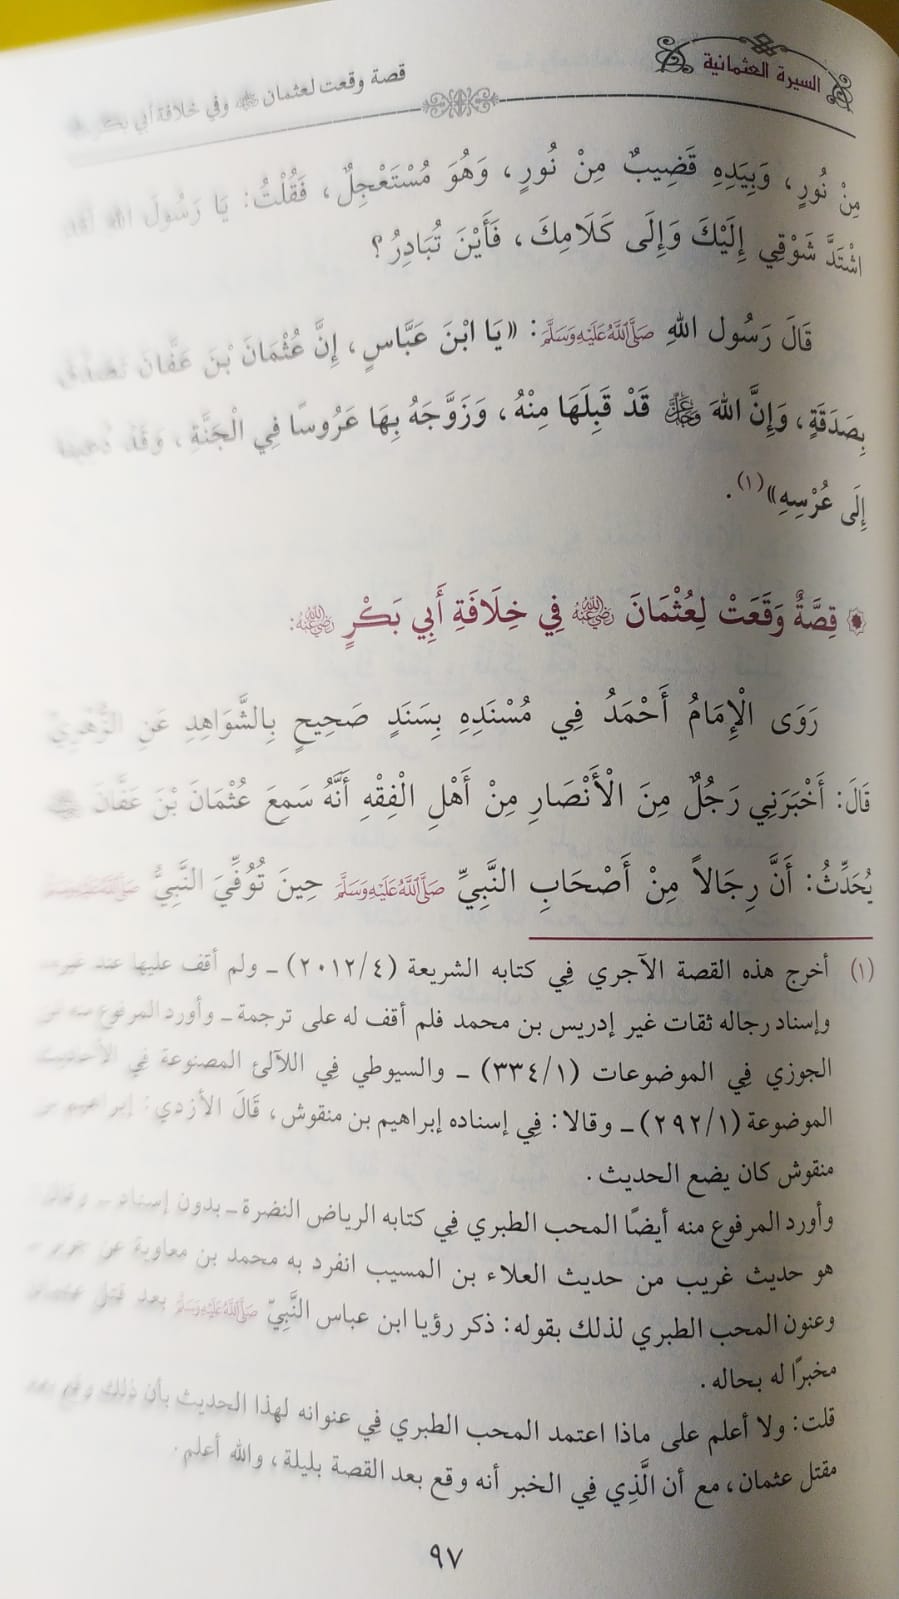 السيرة العثمانية
قصة وقعت لعثمان ﵁ وفي خلافة أبي بكر
مِنْ نُورٍ، وَبِيَدِهِ قَضِيبٌ مِنْ نُورٍ، وَهُوَ مُسْتَعْجِلٌ، فَقُلْتُ: يَا رَسُولَ اللهِ
اشْتَدَّ شَوْقِي إِلَيْكَ وَإِلَى كَلَامِكَ، فَأَيْنَ تُبَادِرُ؟
قَالَ رَسُول اللهِ صَلَّى اللَّهُ عَلَيْهِ وَسَلَّمَ: «يَا ابْنَ عَبَّاسٍ، إِنَّ عُثْمَانَ بْنَ عَفَّانَ تَصَدَّقَ
بِصَدَقَةٍ، وَإِنَّ اللهَ عَزَّ وَجَلَّ قَدْ قَبِلَهَا مِنْهُ، وَزَوَّجَهُ بِهَا عَرُوسًا فِي الْجَنَّةِ، وَقَدْ دُعِينَا
إِلَى عُرْسِهِ»(١).
قِصَّةٌ وَقَعَتْ لِعُثْمَانَ ﵁ فِي خِلَافَةِ أَبِي بَكْرٍ ﵁:
رَوَى الْإِمَامُ أَحْمَدُ فِي مُسْنَدِهِ بِسَنَدٍ صَحِيحٍ بِالشَّوَاهِدِ عَنِ الزُّهْرِيِّ
قَالَ: أَخْبَرَنِي رَجُلٌ مِنَ الْأَنْصَارِ مِنْ أَهْلِ الْفِقْهِ أَنَّهُ سَمِعَ عُثْمَانَ بْنَ عَفَّانَ ﵁
يُحَدِّثُ: أَنَّ رِجَالاً مِنْ أَصْحَابِ النَّبِيِّ صَلَّى اللَّهُ عَلَيْهِ وَسَلَّمَ حِينَ تُوُفِّيَ النَّبِيُّ صَلَّى اللَّهُ عَلَيْهِ وَسَلَّمَ
(١) أخرج هذه القصة الآجري فِي كتابه الشريعة (٢٠١٢/٤) ـ ولم أقف عليها عند غيره
وإسناد رجاله ثقات غير إدريس بن محمد فلم أقف له على ترجمة ـ وأورد المرفوع منه ابن
الجوزي فِي الموضوعات (٣٣٤/١) ـ والسيوطي فِي اللآلئ المصنوعة فِي الأحاديث
الموضوعة (٢٩٢/١) ـ وقالا: فِي إسناده إبراهيم بن منقوش، قَالَ الأزدي: إبراهيم بن
منقوش كان يضع الحديث.
وأورد المرفوع منه أيضًا المحب الطبري فِي كتابه الرياض النضرة ـ بدون إسناد ـ وقال
هو حديث غريب من حديث العلاء بن المسيب انفرد به محمد بن معاوية عن
وعنون المحب الطبري لذلك بقوله: ذكر رؤيا ابن عباس النَّبِيّ صَلَّى اللَّهُ عَلَيْهِ وَسَلَّمَ بعد قتل عثمان
مخبرًا له بحاله.
قلت: ولا أعلم على ماذا اعتمد المحب الطبري فِي عنوانه لهذا الحديث بأن ذلك وقع بعد
مقتل عثمان، مع أن الَّذِي فِي الخبر أنه وقع بعد القصة بليلة، والله أعلم.
٩٧